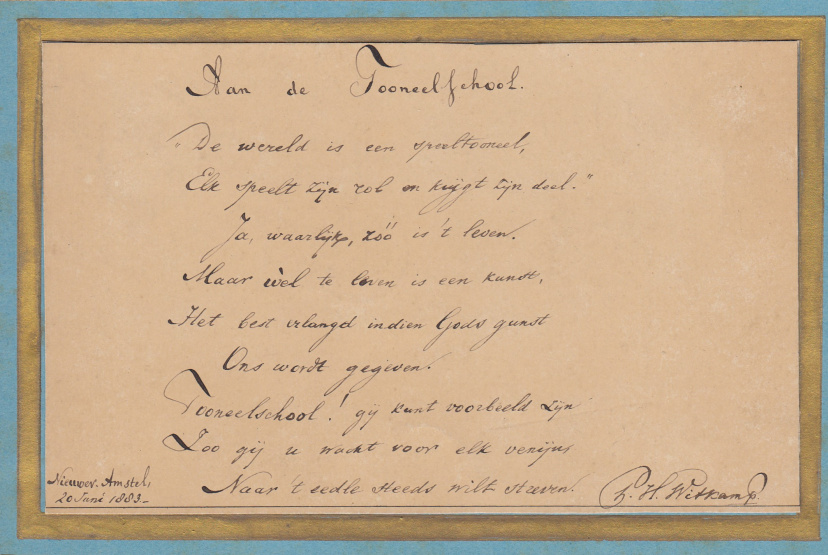 Aan de Tooneelschool.
"De wereld is een speeltooneel,
Elk speelt zijn rol en krijgt zijn deel."
Ja, waarlijk, zóó is 't leven.
Maar wèl te leven is een kunst,
Het best erlangd indien Gods gunst
Ons wordt gegeven.
Tooneelschool! gij kunt voorbeeld zijn
Zoo gij u wacht voor elk venijn
Naar 't eedle steeds wilt streven.
Nieuwer. Amstel,
20 Juni 1883.-
P. H. Witkamp.